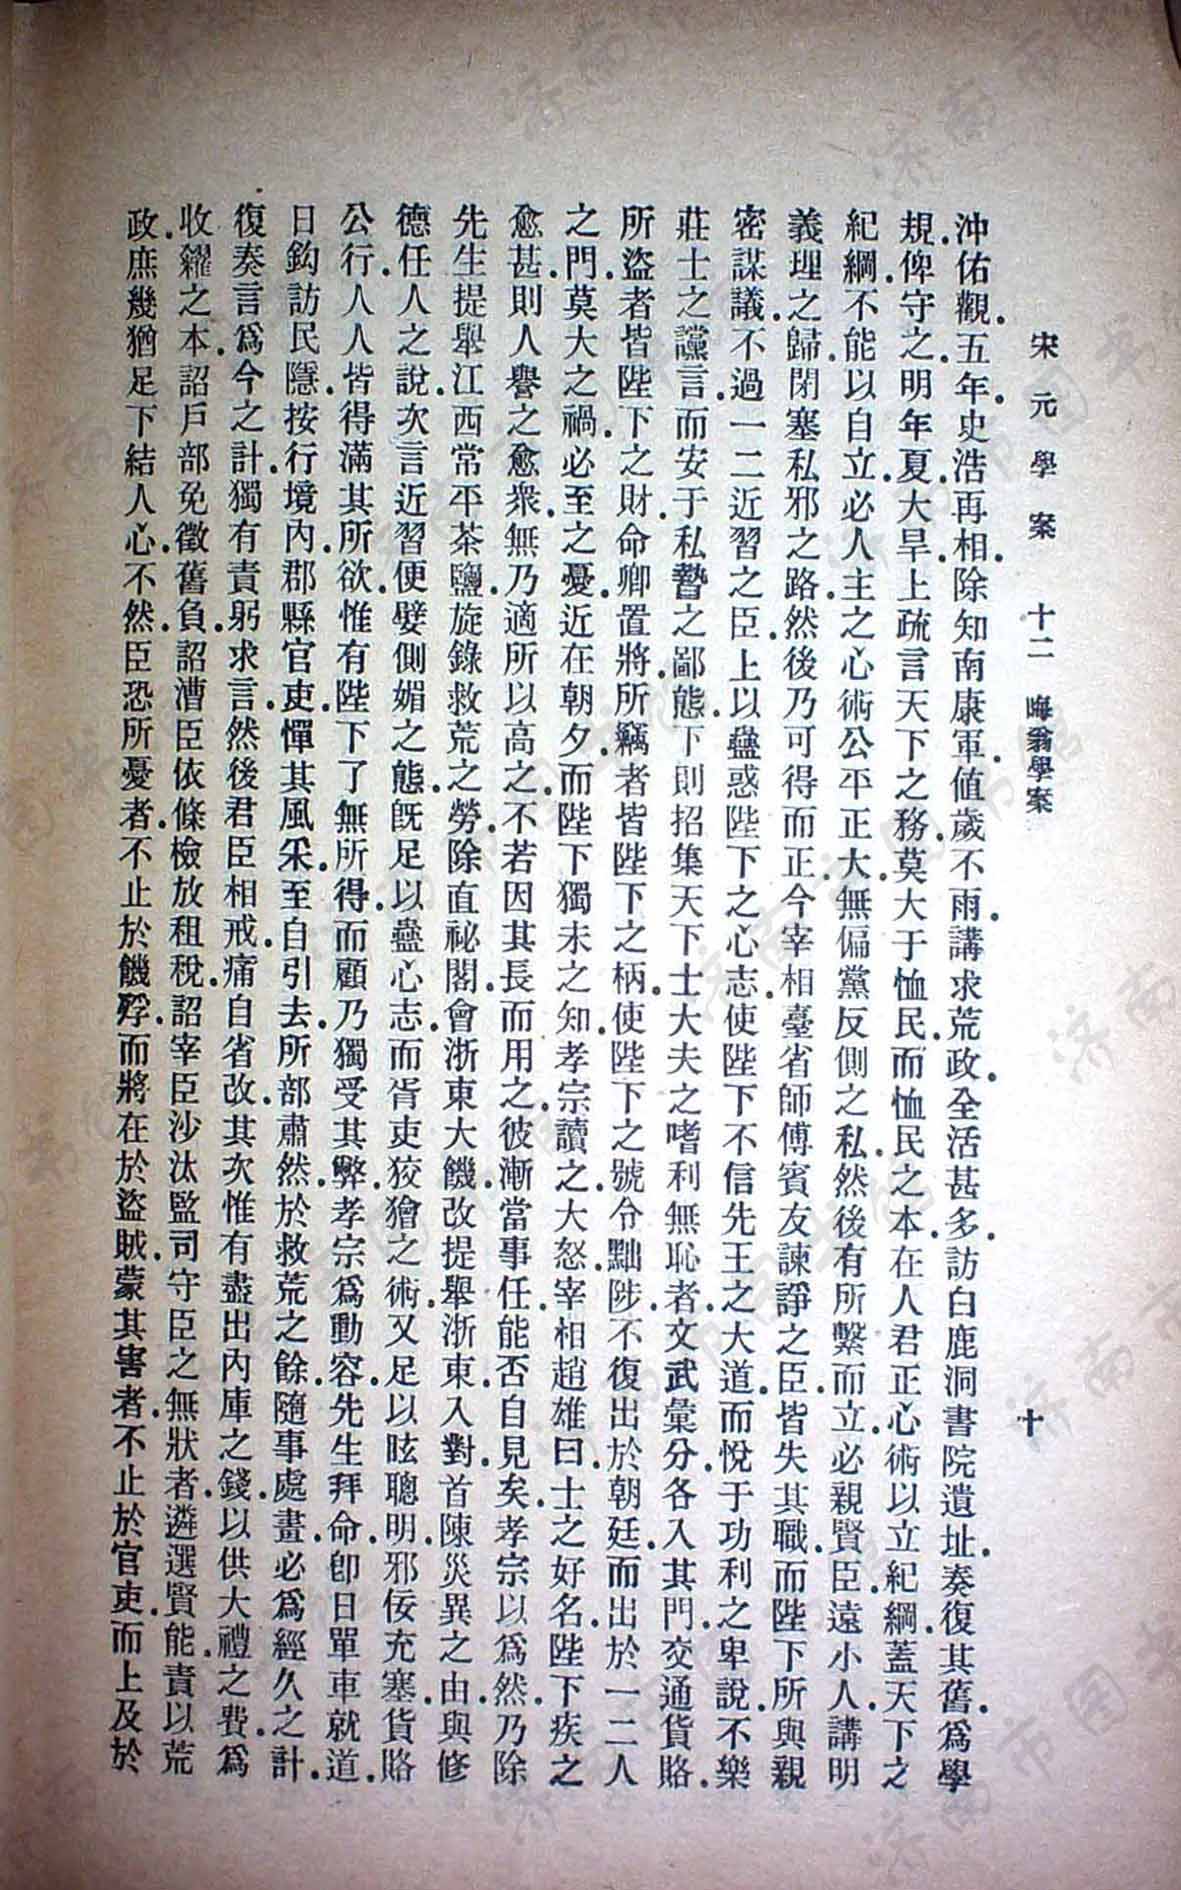 宋元學案 十二 晦翁學案 十
沖佑觀.五年.史浩再相.除知南康軍.值歲不雨.講求荒政.全活甚多.訪白鹿洞書院遺址.奏復其舊.爲學
規.俾守之.明年夏.大旱.上疏言天下之務.莫大于恤民.而恤民之本.在人君正心術以立紀綱.蓋天下之
紀綱.不能以自立.必人主之心術公平正大.無偏黨反側之私.然後有所繫而立.必親賢臣.遠小人.講明
義理之歸.閉塞私邪之路.然後乃可得而正.今宰相臺省師傅賓友諫諍之臣.皆失其職.而陛下所與親
密謀議.不過一二近習之臣.上以蠱惑陛下之心志.使陛下不信先王之大道.而悅于功利之卑說.不樂
莊士之讜言.而安于私暬之鄙態.下則招集天下士大夫之嗜利無恥者.文武彙分.各入其門.交通貨賂.
所盜者皆陛下之財.命卿置將.所竊者皆陛下之柄.使陛下之號令黜陟.不復出於朝廷.而出於一二人
之門.莫大之禍.必至之憂.近在朝夕.而陛下獨未之知.孝宗讀之大怒.宰相趙雄曰.士之好名.陛下疾之
愈甚.則人譽之愈衆.無乃適所以高之.不若因其長而用之.彼漸當事任.能否自見矣.孝宗以爲然.乃除
先生提舉江西常平茶鹽.旋錄救荒之勞.除直祕閣.會浙東大饑.改提舉浙東.入對.首陳災異之由.與修
德任人之說.次言近習便嬖側媚之態.旣足以蠱心志.而胥吏狡獪之術.又足以眩聰明.邪佞充塞.貨賂
公行.人人皆得滿其所欲.惟有陛下了無所得.而顧乃獨受其弊.孝宗爲動容.先生拜命.卽日單車就道.
日鈎訪民隱.按行境內.郡縣官吏.憚其風采.至自引去.所部肅然.於救荒之餘.隨事處畫.必爲經久之計.
復奏言.爲今之計.獨有責躬求言.然後君臣相戒.痛自省改.其次惟有盡出內庫之錢.以供大禮之費.爲
收糴之本.詔戶部免徵舊負.詔漕臣依條檢放租稅.詔宰臣沙汰監司守臣之無狀者.遴選賢能.責以荒
政.庶幾猶足下結人心.不然.臣恐所憂者.不止於饑殍.而將在於盜賊.蒙其害者.不止於官吏.而上及於